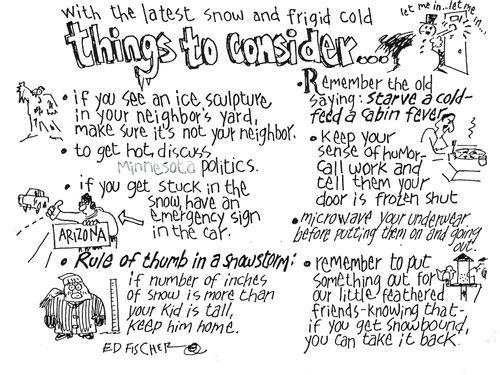 with the latest snow and frigid cold
things to consider...
let me in...let me in...!
• if you see an ice sculpture
in your neighbor's yard,
make sure it's not your neighbor.
• to get hot, discuss
Minnesota politics.
• if you get stuck in the
snow, have an
emergency sign
in the car.
ARIZONA
• Rule of thumb in a snowstorm:
if number of inches
of snow is more than
your kid is tall,
keep him home.
ED FISCHER
• Remember the old
saying: starve a cold-
feed a cabin fever.
• keep your
sense of humor-
call work and
tell them your
door is frozen shut
• microwave your underwear
before putting them on and going
out.
• remember to put
something out for
our little feathered
friends-knowing that-
if you get snowbound,
you can take it back.